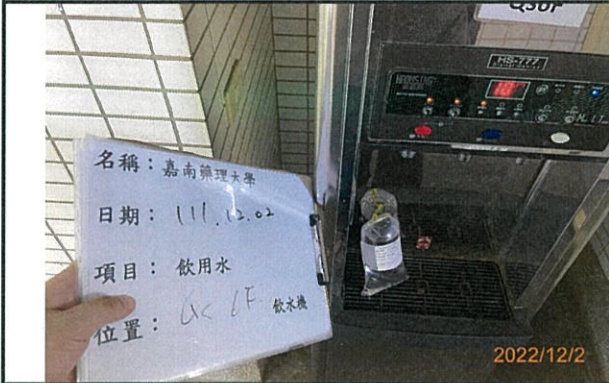 HS-777
名稱：嘉南藥理大學
日期：111.12.02
項目：飲用水
位置： 6F 飲水機
2022/12/2